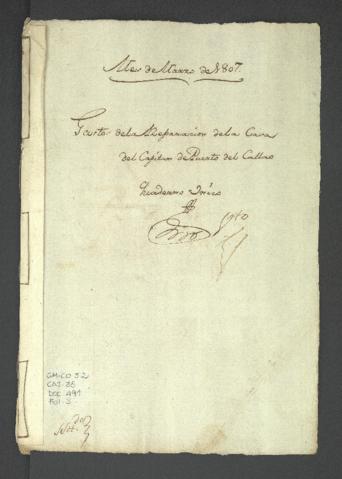 Mes de Marzo de 1807.
Gastos de la Reparacion de la Casa
del Capitan de Puerto del Callao
Quaderno Unico
GM-CO 52
CAJ. 35
DOC. 491
Fol. 3